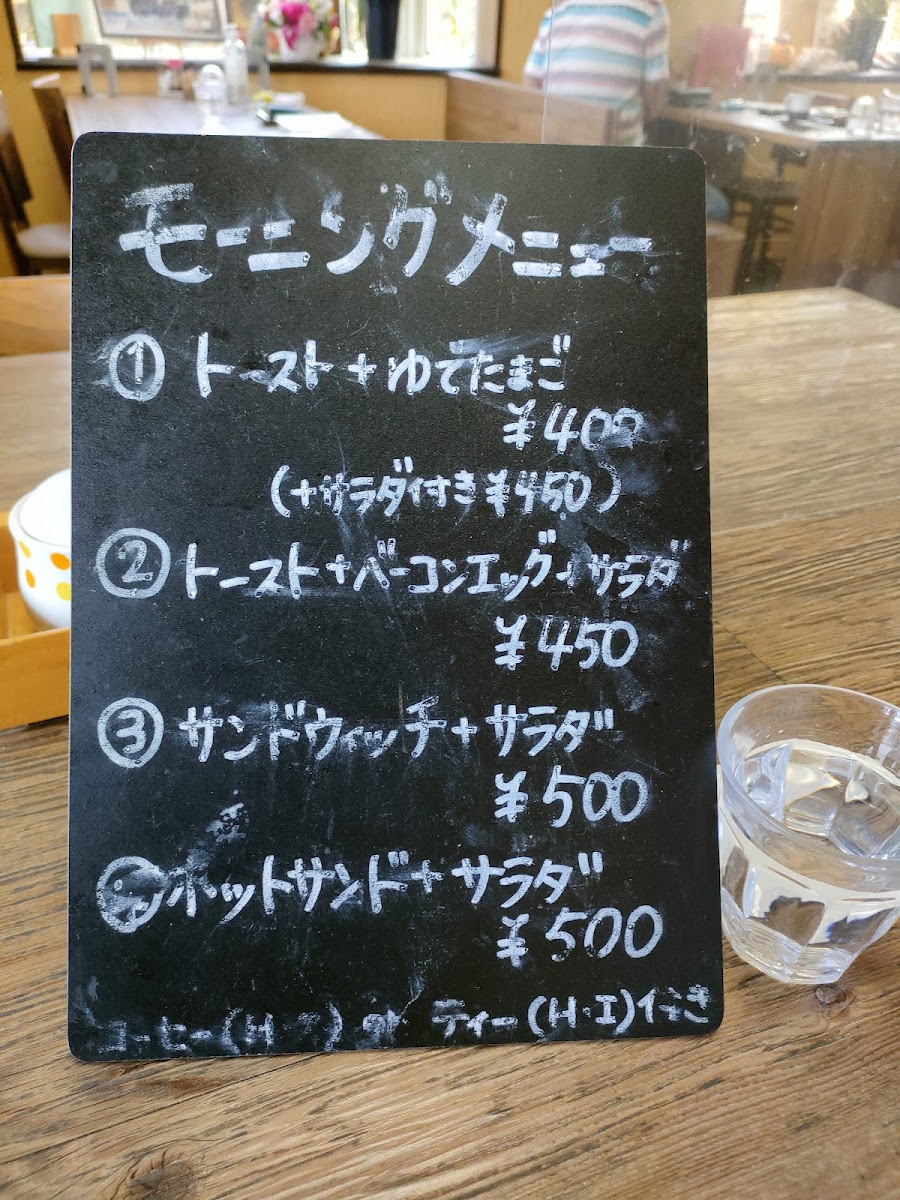 モーニングメニュー
① トースト+ゆでたまご
¥400
(+サラダ付き¥450)
② トースト+ベーコンエッグ+サラダ
¥450
③ サンドウィッチ+サラダ
¥500
ホットサンド+サラダ
¥500
コーヒー(H ) or ティー(H・I)付き